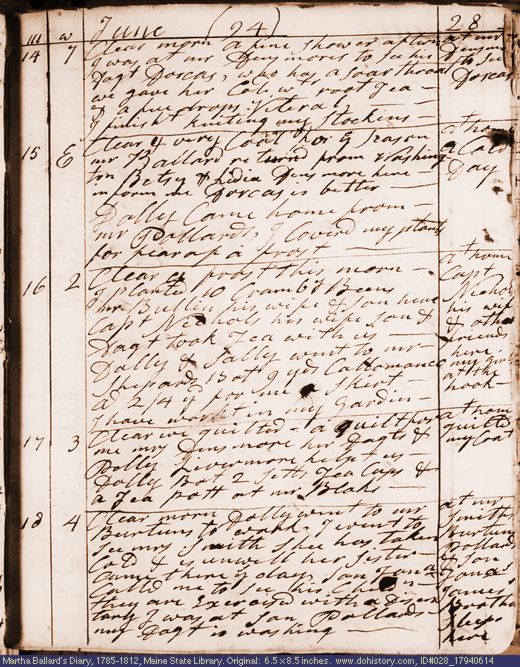 m w June (24) 28
14 7 Clear morn a fine shower aftern at mr
I was at mr Densmores to see his Densmor
Dagt Dorcas, who has a soar throat to see
we gave her Col w root Tea Dorcas
& a few drops
I finisht kniting my stockens
15 E Clear & very Cool for ye season at home
mr Ballard returnd from Washing a Cold
ton Betsy & Lidia Densmore here Day
inform me Dorcas is better
Dolly Came home from
mr Pollards I Coverd my plants
for fear of a frost
16 2 Clear a frost this morn at home
I planted 10 Cramby Beens Capt
mr Bullin his wife & son here Nichols
Capt Nichols his wife son & his wife
Dagt took Tea with us & other
Dolly & Sally went to mr friends
Shepards Bot 9 yd Callomanco here
at 2/4 for me a skirt my girls
I have workt in my Gardin at the
hook
17 3 Clear we quilted a quilt for at home
me mrs Densmore her Dagts & quilted
Polly Livermore helpt us my Coat
Dolly Bot 2 setts Tea Cups &
a Tea Pott at mr Blaks
18 4 Clear morn Dolly went to mr at mr
Burtuns to work I went to Smith
see mrs Smith shee has taken Burtun
Cold & is unwell her sister Pollard
Came there to day son Jona & son
Calld me to see his Children Jonas
they are Exercised with a Disen James
tery I was at son Pollard Booth
my Dagt is washing sleeps
here
Martha Ballard's Diary, 1785-1812, Maine State Library. Original: 6.5 x 8.5 inches. www.dohistory.org, ID#028_17940614